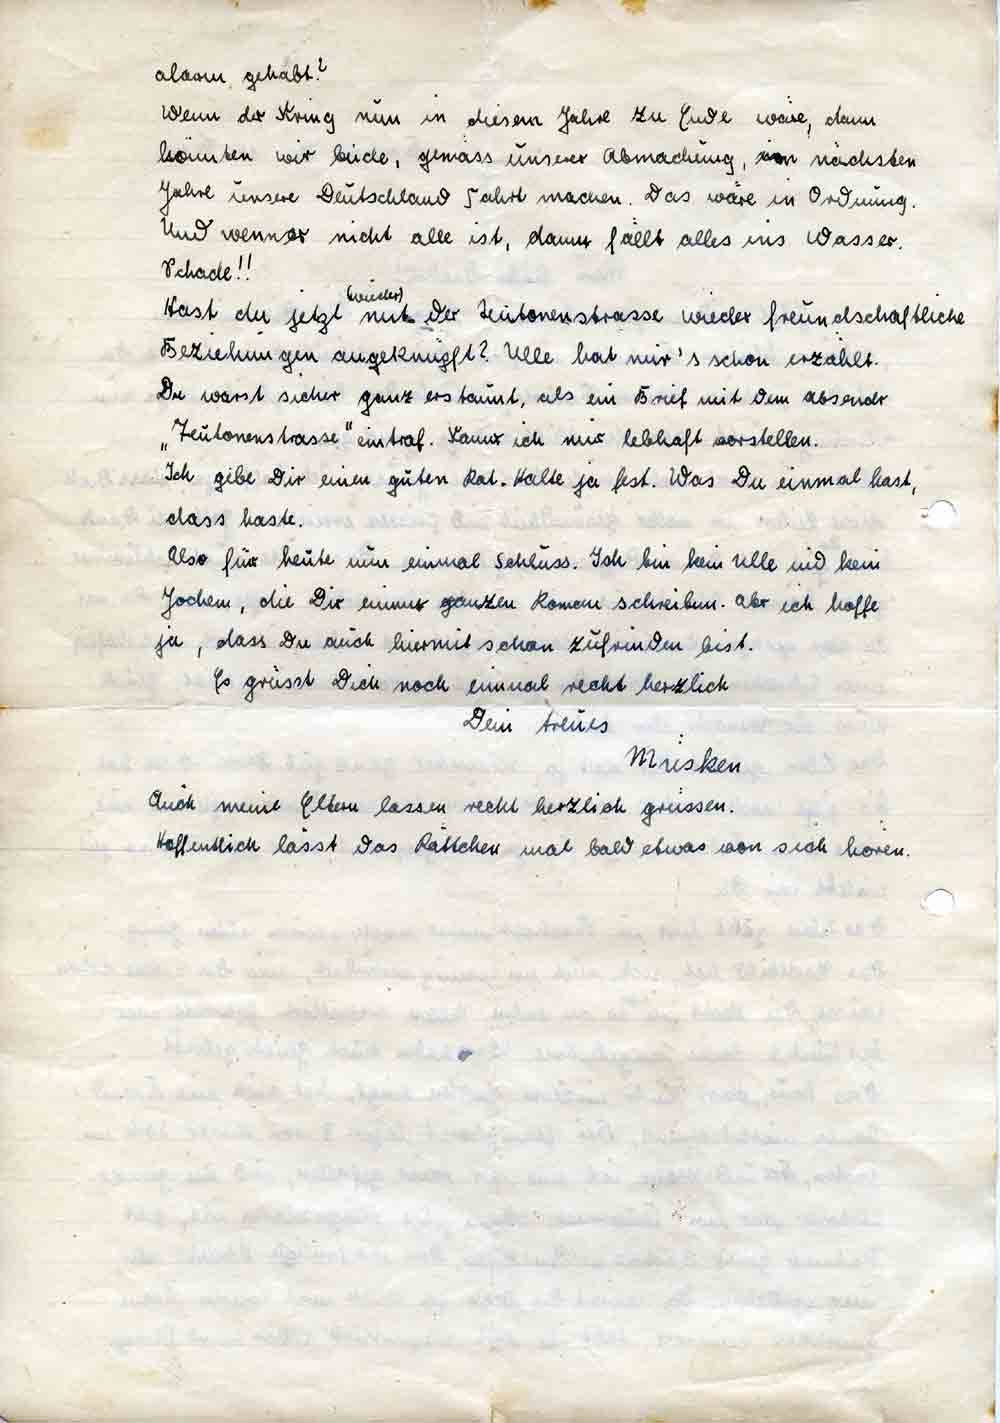 alarm gehabt?
Wenn der Krieg nun in diesem Jahre zu Ende wäre, dann
könnten wir beide, gemäss unserer Abmachung, im nächsten
Jahre unsere Deutschland Fahrt machen. Das wäre in Ordnung.
Und wenn er nicht alle ist, dann fällt alles ins Wasser.
Schade!!
Hast du jetzt (wieder) mit der Teutonenstrasse wieder freundschaftliche
Beziehungen angeknüpft? Ulle hat mir's schon erzählt.
Du warst sicher ganz erstaunt, als ein Brief mit dem absender
„Teutonenstrasse" eintraf. Kann ich mir lebhaft vorstellen.
Ich gebe Dir einen guten Rat. Halte ja fest. Was Du einmal hast,
dass haste.
Also für heute nun einmal Schluss. Ich bin kein Ulle und kein
Jochem, die Dir immer ganzen Romane schreiben. Aber ich hoffe
ja, dass Du auch hiermit schon zufrieden bist.
Es grüsst Dich noch einmal recht herzlich
Dein treues
Müsken
Auch meine Eltern lassen recht herzlich grüssen.
Hoffentlich lässt das Rättchen mal bald etwas von sich hören.